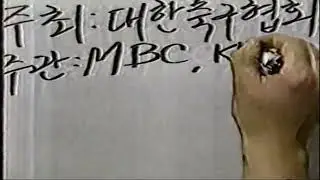 주최:대한축구협회
주관:MBC, K